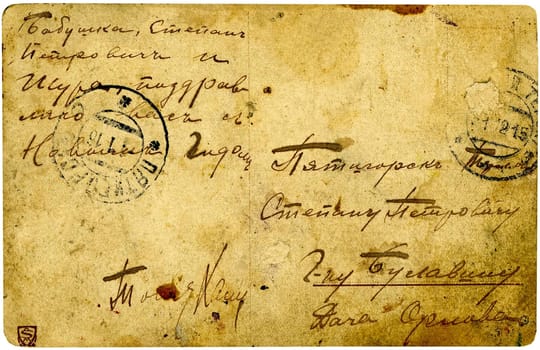 Бабушка, Степанъ
Петровичъ и
Шура поздрав
ляю васъ съ
Новымъ Годомъ
Пятигорскъ
Степану Петровичу
Г-ну Буславину
Дача Орлова